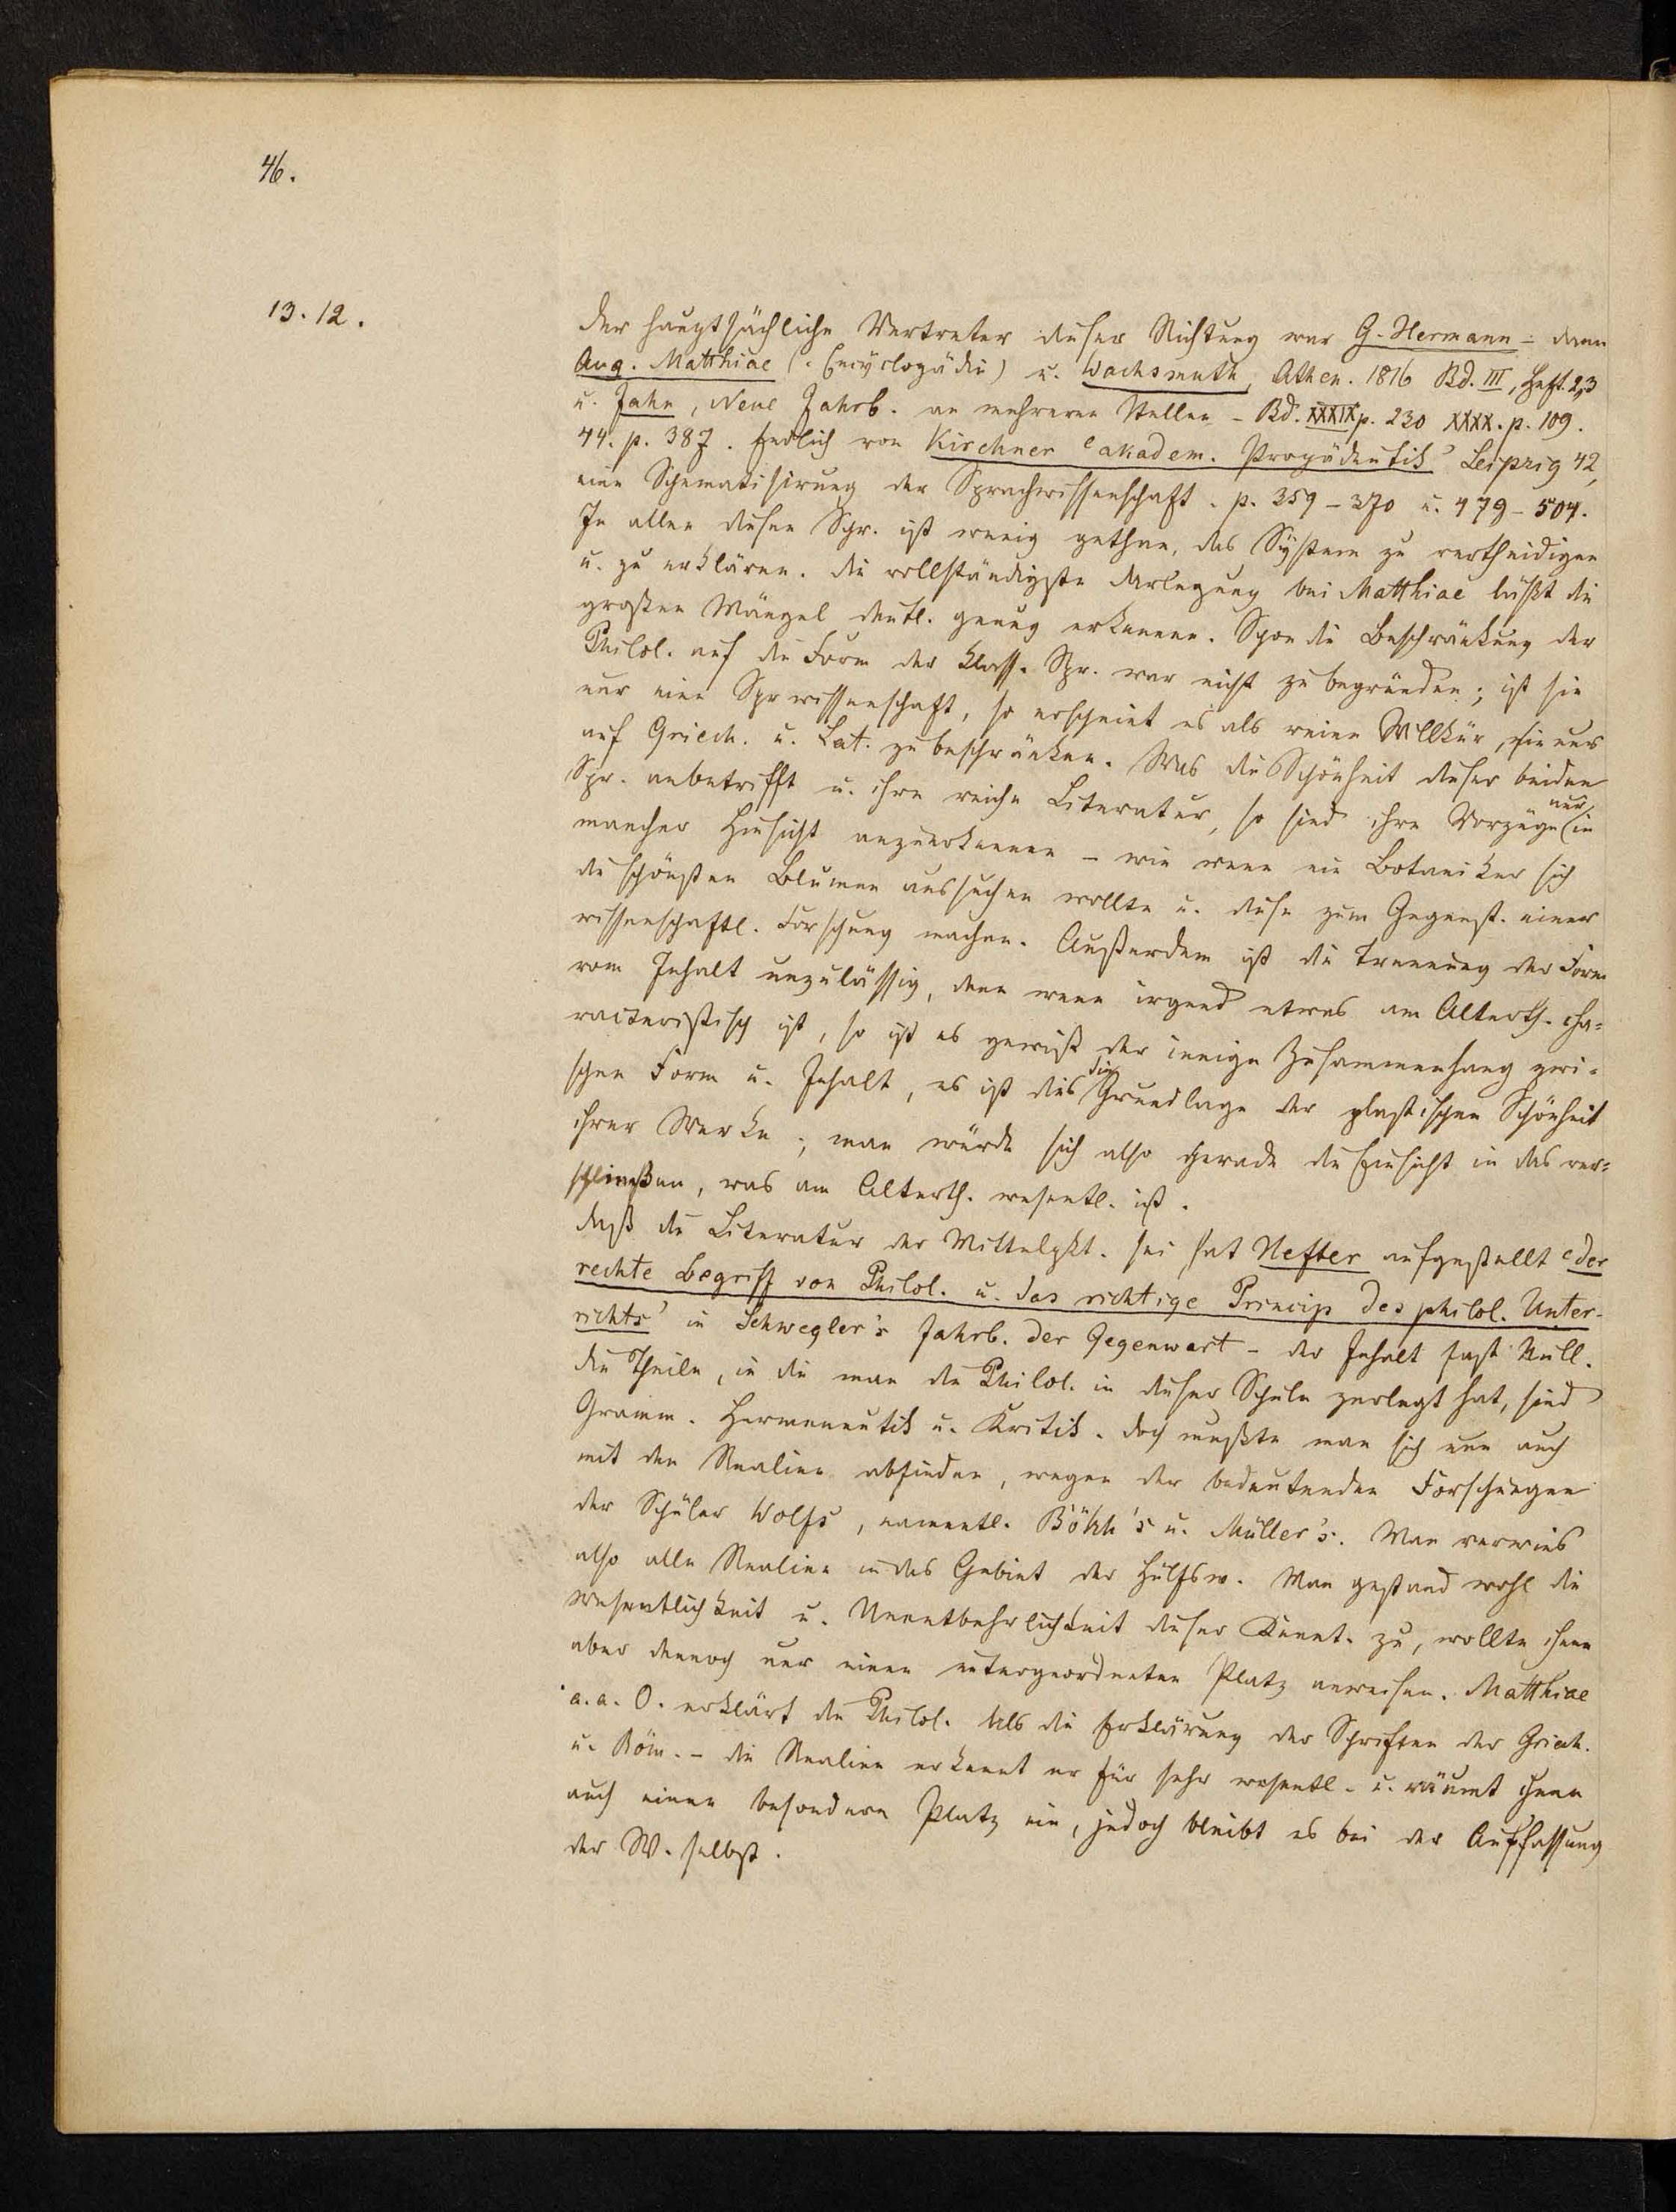 46.
13.12.
Der hauptsächliche Vertreter dieser Richtung war G. Hermann – dann
Aug. Matthiae (: Encyclopädie) u. Wachsmuth, Athen. 1816 Bd. III, Heft. 2,3
u. Jahn, Neue Jahrb. an mehreren Stellen – Bd. XXXIX p. 230 XXXX. p. 109.
44. p. 387. Endlich von Kirchner 'akadem. Propädeutik' Leipzig 42,
eine Schematisirung der Sprachwissenschaft. p. 359–370 u. 479–504.
In allen diesen Schr. ist wenig gethan, das System zu vertheidigen
u. zu erklären. Die vollständigste Darlegung bei Matthiae läßt die
großen Mängel deutl. genug erkennen. Schon die Beschränkung der
Philol. auf die Form der klass. Spr. war nicht zu begründen; ist sie
nur eine Sprwissenschaft, so erscheint es als reine Willkür, sie nur
auf Griech. u. Lat. zu beschränken. Was die Schönheit dieser beiden
Spr. anbetrifft u. ihre reiche Literatur, so sind ihre Vorzüge nur in
mancher Hinsicht anzuerkennen – wie wenn ein Botaniker sich
die schönsten Blumen aussuchen wollte u. diese zum Gegenst. einer
wissenschaftl. Forschung machen. Außerdem ist die Trennung der Form
vom Inhalt unzulässig, denn wenn irgend etwas am Alterth. cha=
racteristisch ist, so ist es gewiß der innige Zusammenhang zwi=
schen Form u. Inhalt, es ist dies die Grundlage der plastischen Schönheit
ihrer Werke; man würde sich also gerade die Einsicht in das ver=
schließen, was am Alterth. wesentl. ist.
Daß die Literatur der Mittelpkt. sei hat Hefter aufgestellt 'der
rechte Begriff von Philol. u. das richtige Princip des philol. Unter-
richts' in Schwegler's Jahrb. der Gegenwart – der Inhalt fast Null.
Die Theile, in die man die Philol. in dieser Schule zerlegt hat, sind
Gramm. Hermeneutik u. Kritik. Doch mußte man sich nun auch
mit den Realien abfinden, wegen der bedeutenden Forschungen
der Schüler Wolfs, namentl. Bökh's u. Müller's. Man verwies
also alle Realien in das Gebiet der Hülfsw. Man gestand wohl die
Wesentlichkeit u. Unentbehrlichkeit dieser Kennt. zu, wollte ihnen
aber dennoch nur einen untergeordneten Platz anweisen. Matthiae
a. a. O. erklärt die Philol. als die Erklärung der Schriften der Griech.
u. Röm. – die Realien erkennt er für sehr wesentl. u. räumt ihnen
auch einen besondern Platz ein, jedoch bleibt es bei der Auffassung
der W. selbst.